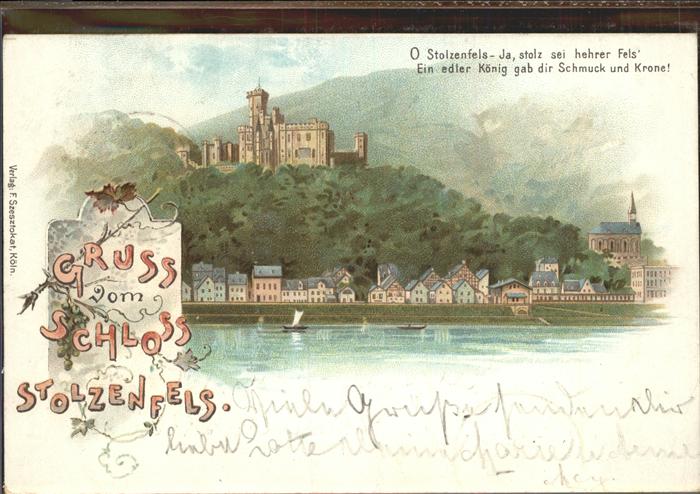 O Stolzenfels - Ja, stolz sei hehrer Fels'
Ein edler König gab dir Schmuck und Krone!
Verlag: F. Szesztokat, Köln.
GRUSS
vom
SCHLOSS
STOLZENFELS.
Viele Grüße senden dir
liebe